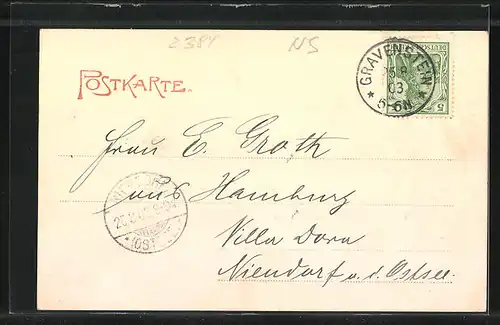 2384 NS
POSTKARTE.
GRAVENSTEIN
03
5-6N
DEUTSCHES
5
Frau E. Groth
aus Hamburg
Villa Dora
Niendorf a. d. Ostsee.